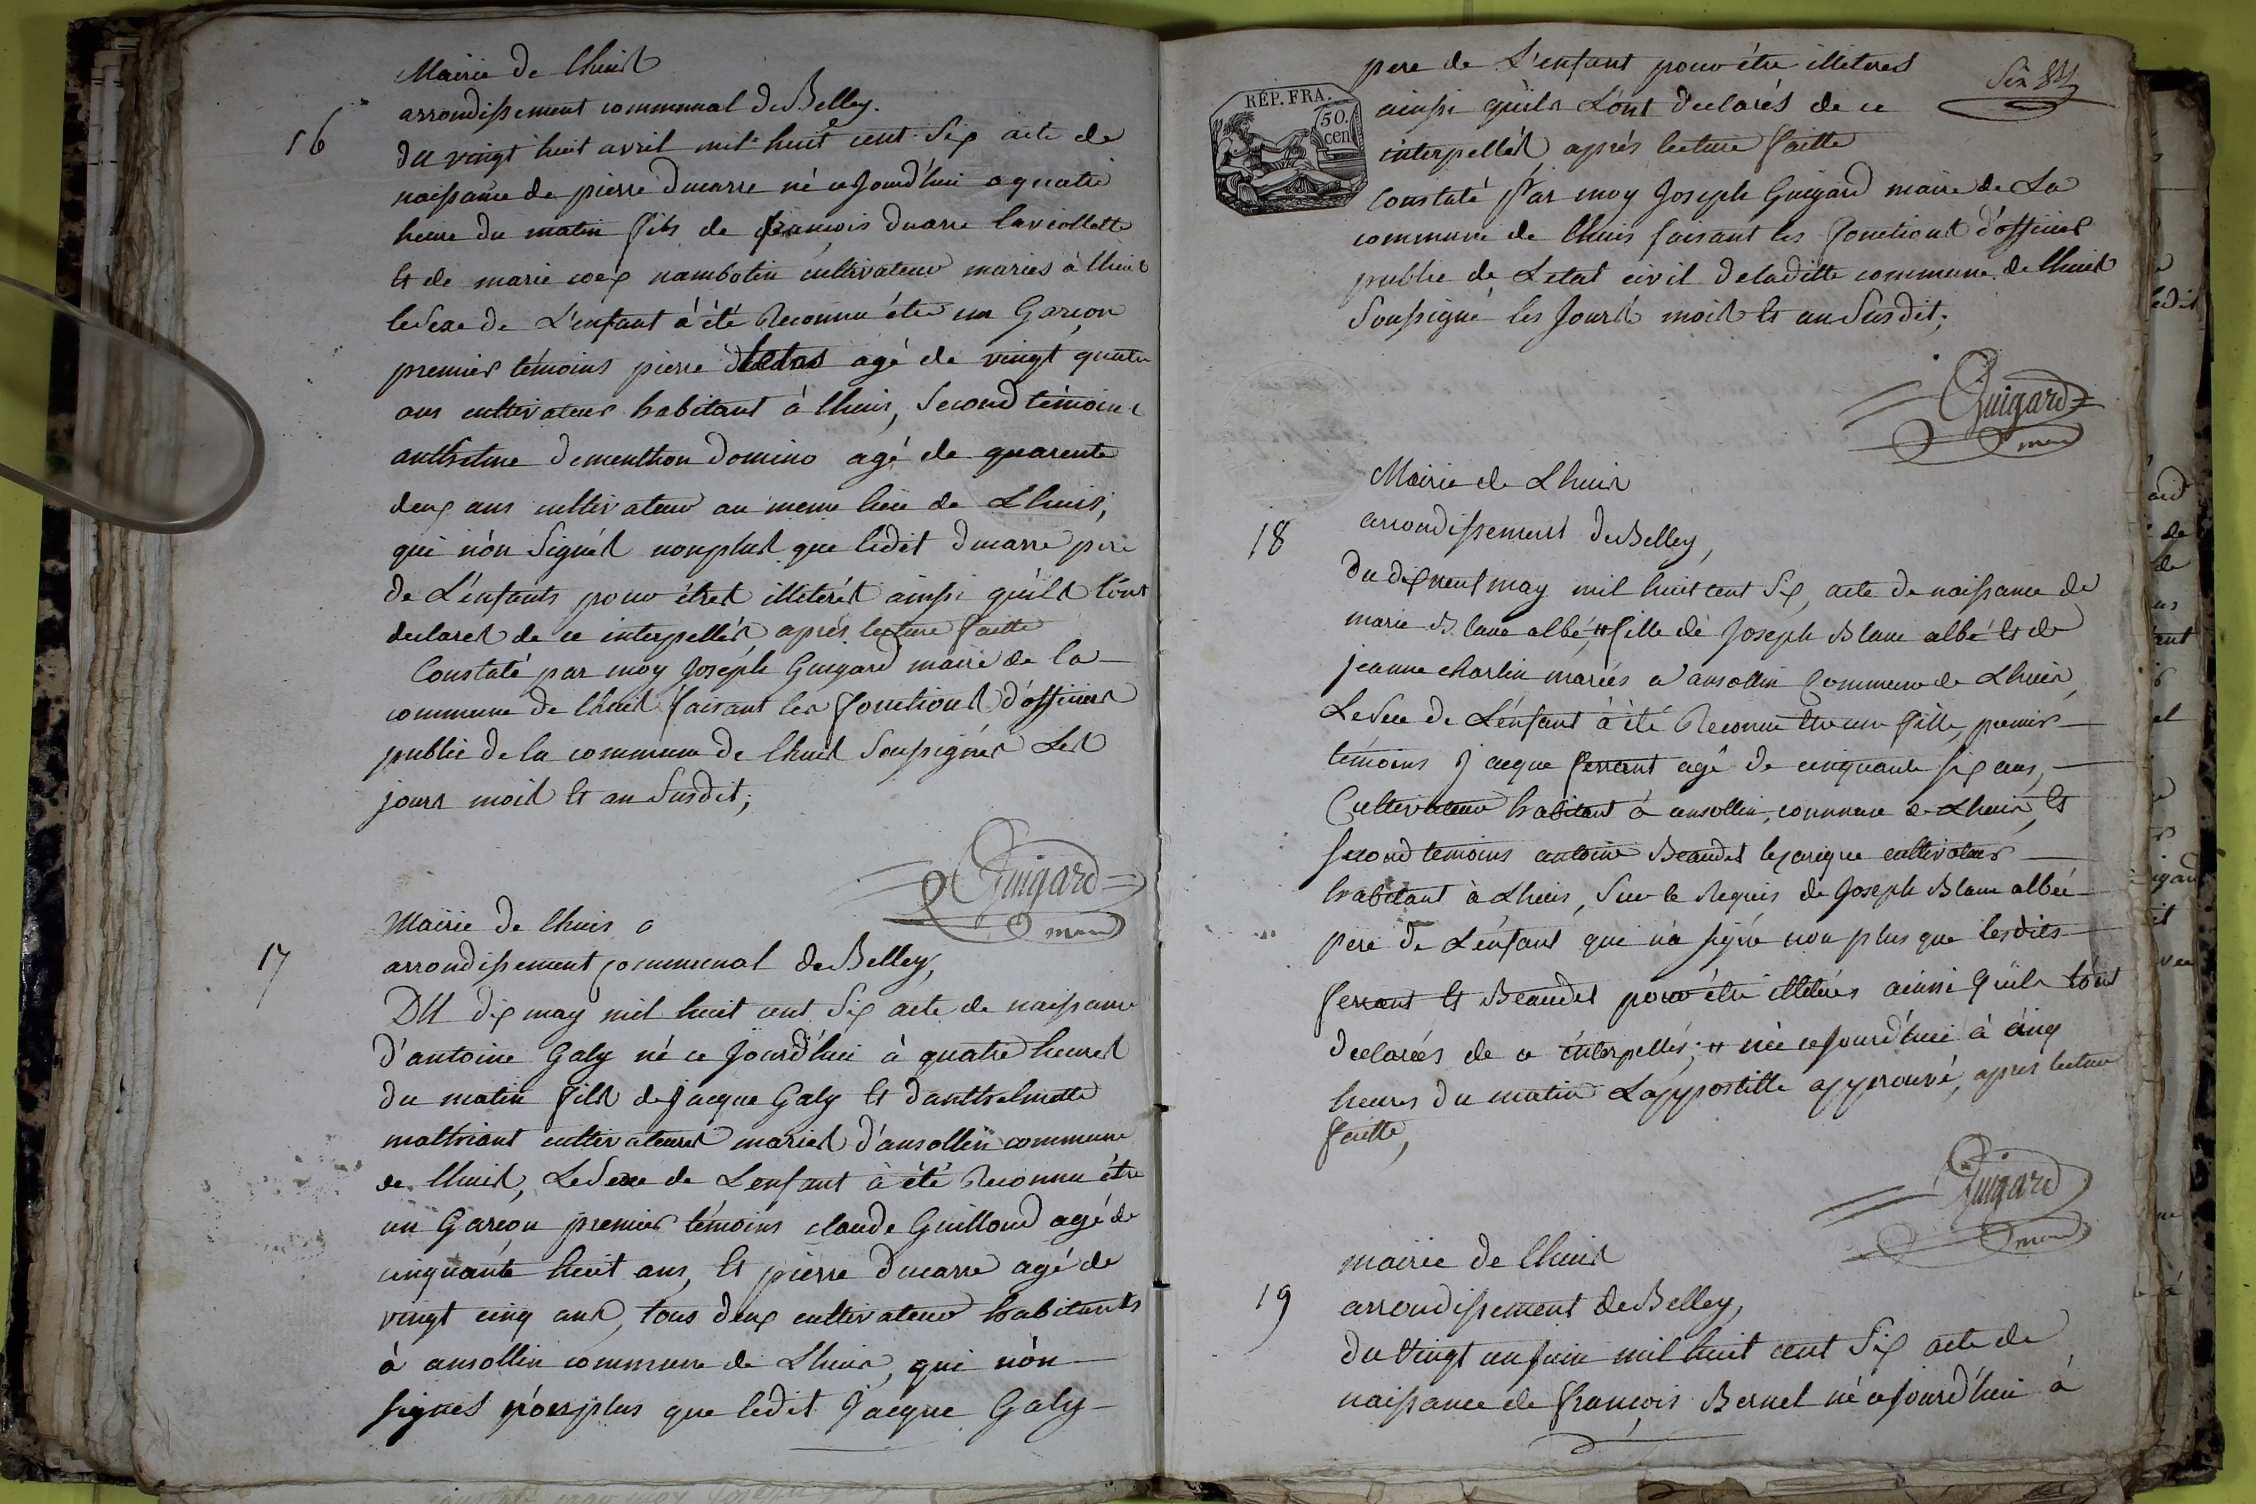 Mairie de lhuis
arrondissement communal de Belley.
16
du vingt huit avril mil huit cent six acte de
naissance de pierre ducarre né ce jourd'hui a quatre
heure du matin fils de françois ducarre laviollette
et de marie coex nambotin cultivateur mariés à lhuis
le sexe de L'enfant à été Reconnu être un Garçon
premier témoins pierre agé de vingt quatre
ans cultivateur habitant à lhuis, second témoins
anthelme dementhon domino agé de quarente
deux ans cultivateur au meme lieu de Lhuis,
qui n'on signés nonplus que ledit ducarre pere
de L'enfants pour êtres illiterés ainsi qu'ils l'ont
declares de ce interpellés après lecture faitte
Constaté par moy Joseph Guigard maire de la
commune de lhuis faisant les fonctions d'officier
public de la commune de lhuis soussignés Les
jours mois et an susdit;
Guigard
maire
Mairie de lhuis
17
arrondissement communal de Belley,
DU dix may mil huit cent six acte de naissance
d'antoine Galy né ce jourd'hui à quatre heures
du matin fils de jacque Galy et d'anthelmette
mathiant cultivateurs mariés d'ansollin commune
de lhuis, Le sexe de L'enfant à été Reconnu être
un Garçon premier témoins claude Guilloud agé de
cinquante huit ans, et pierre ducarre agé de
vingt cinq ans, tous deux cultivateur habitants
à ansollin commune de Lhuis, qui n'on
signés nonplus que ledit Jacque Galy
pere de L'enfant pour être illiterés
Six
RÉP. FRA.
50.
cen
ainsi qu'ils L'ont declarés de ce
interpellés après lecture faitte
Constaté Par moy Joseph Guigard maire de La
commune de lhuis faisant les fonctions d'officier
public de L'etat civil de laditte commune de lhuis
soussigné les jours mois et an susdit;
Guigard
maire
Mairie de Lhuis
18
arrondissement de Belley,
du dix neuf may mil huit cent six, acte de naissance de
marie Blanc albé, # fille de Joseph Blanc albé et de
jeanne charlin mariés a ansollin Commune de Lhuis,
Le sexe de L'enfant à été Reconnu être une fille, premier
témoins Jacque ferrant agé de cinquante six ans,
Cultivateur habitant à ansollin, commune de Lhuis, et
second temoins antoine Beaudet cultivateur
habitant à Lhuis, sur le Requis de Joseph Blanc albé
pere de L'enfant qui n'a signé non plus que lesdits
ferrant et Beaudet pour être illiterés ainsi qu'ils l'ont
declarées de ce interpellés; # née cejourd'hui à cinq
heures du matin L'appostille approuvé, après lecture
faitte,
Guigard
maire
mairie de lhuis
19
arrondissement de Belley,
du vingt un juin mil huit cent six acte de
naissance de françois Bernet né cejourd'hui à